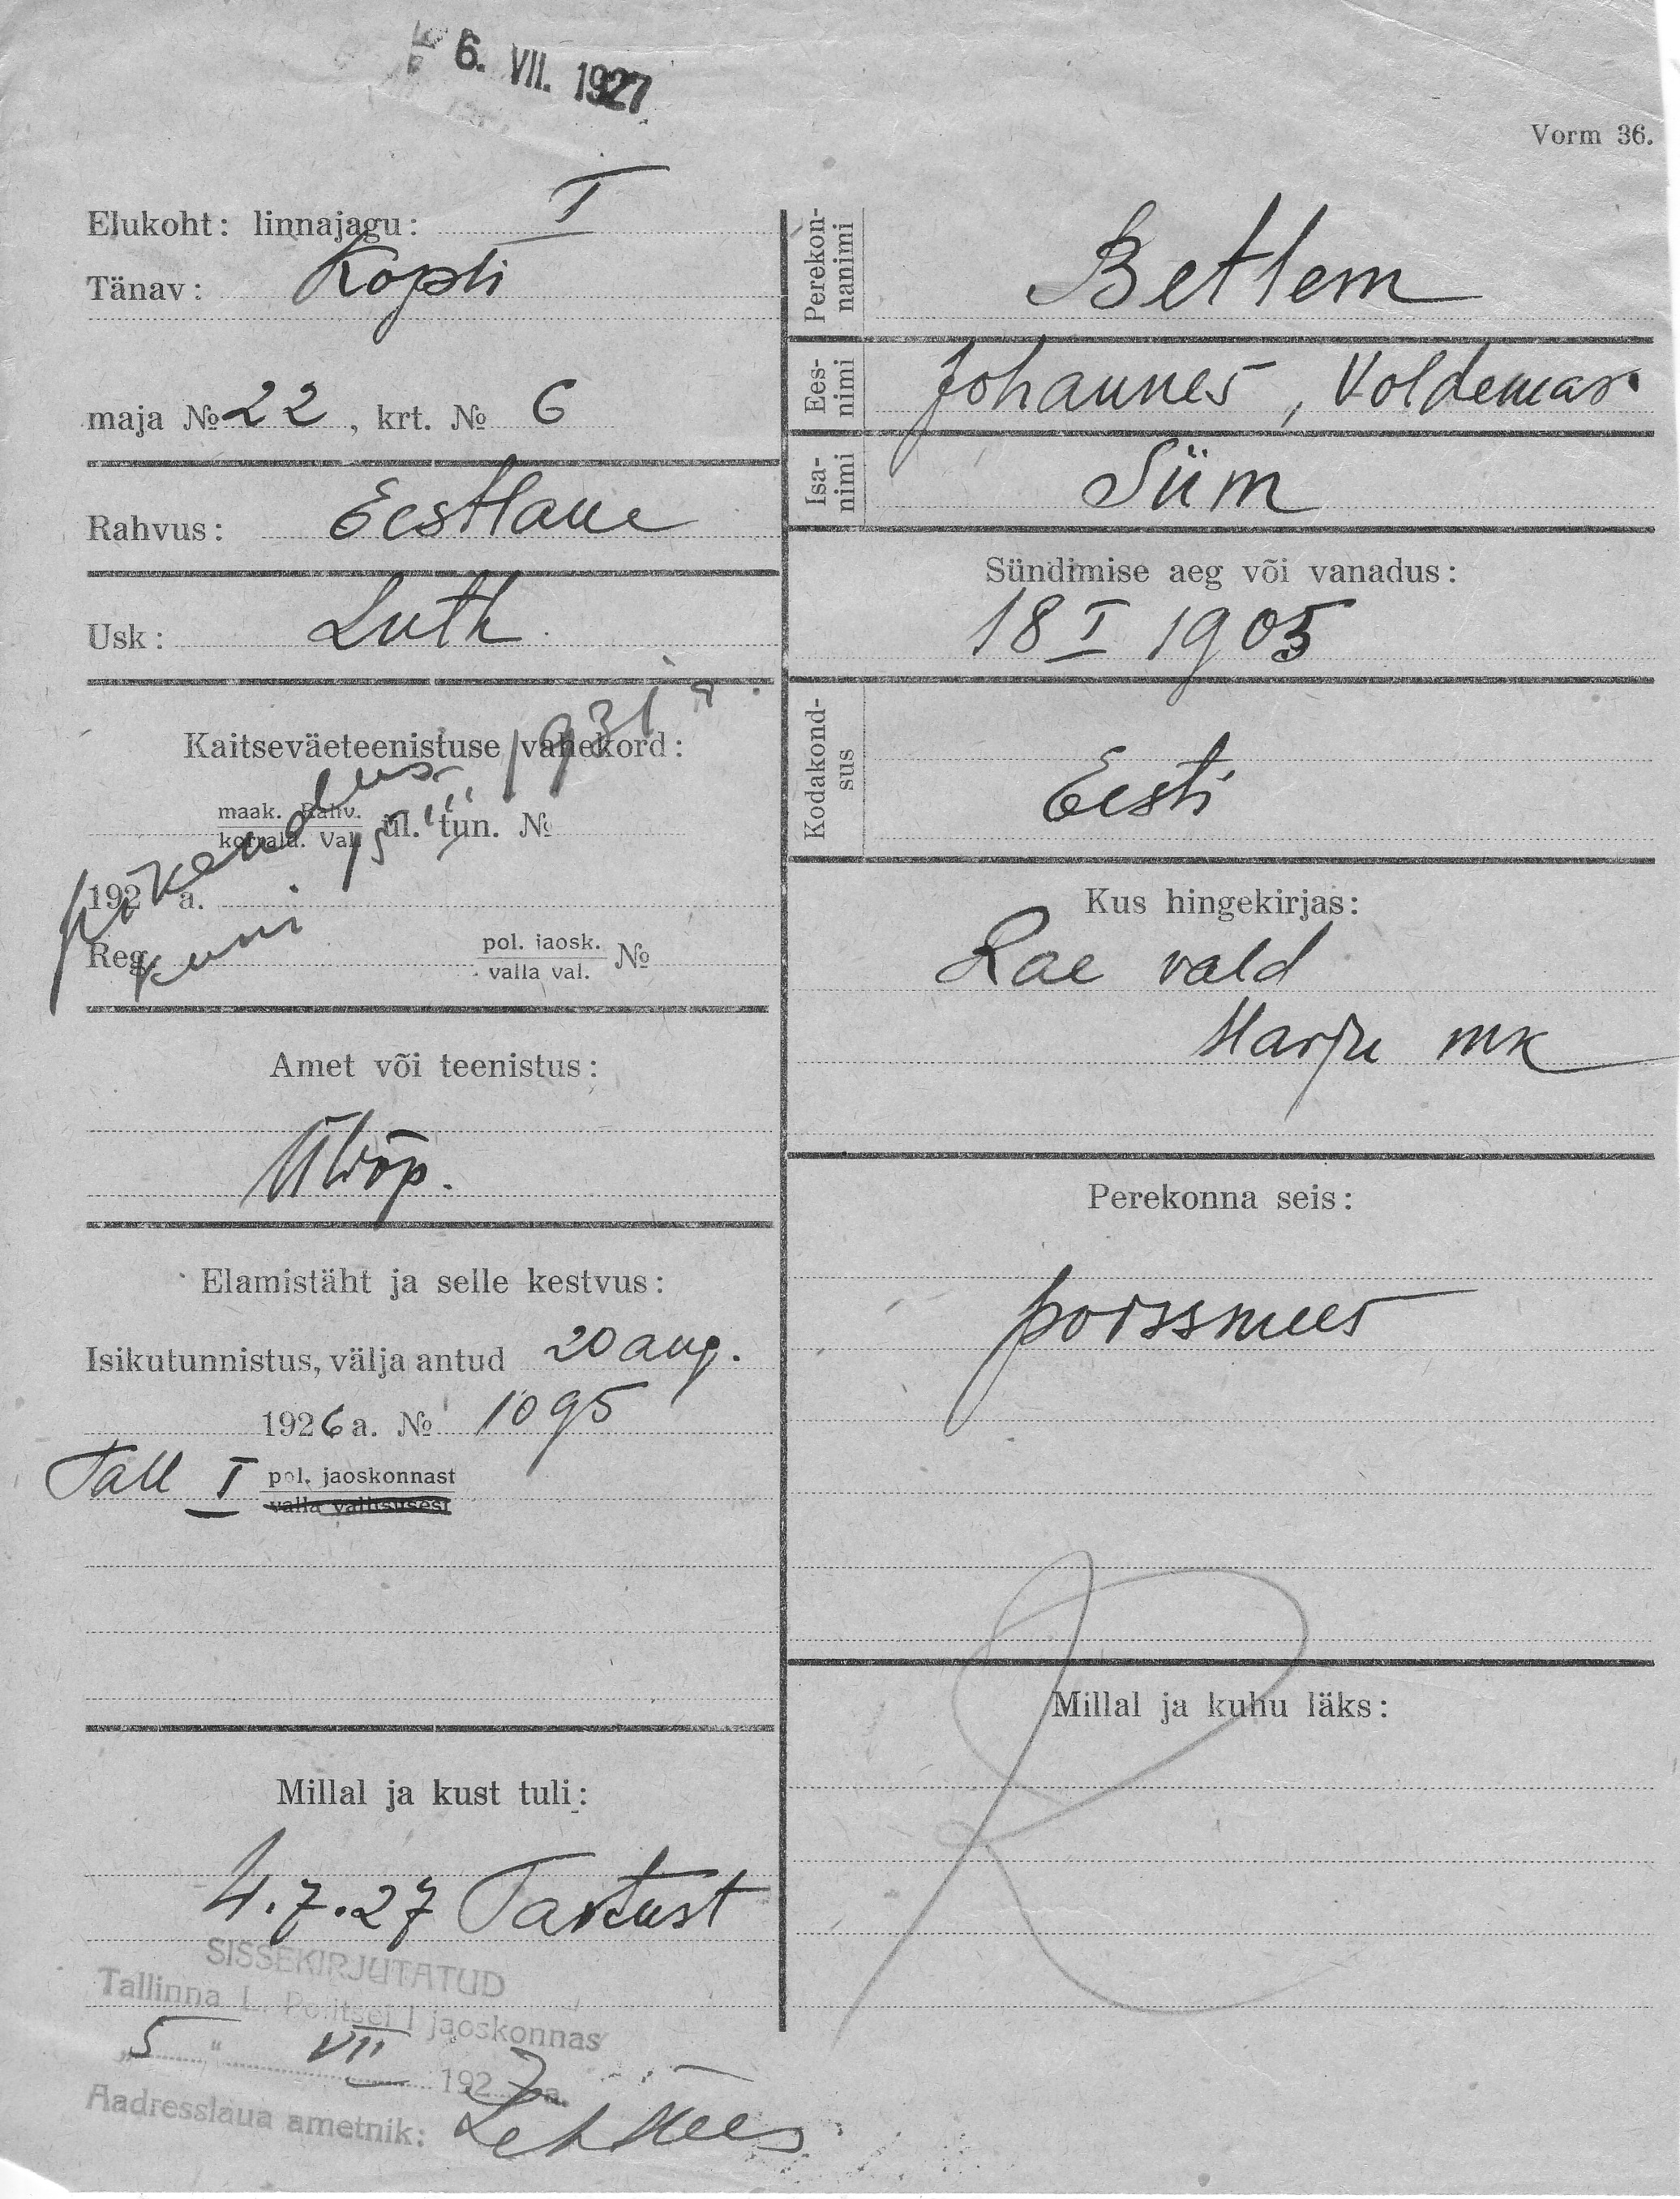 6. VII. 1927
Vorm 36.
Elukoht: linnajagu: I
Tänav: Kopli
maja № 22, krt. № 6
Rahvus: Eestlane
Usk: Luth
Kaitseväeteenistuse vahekord:
pikendus
kuni 15 III 1931 a.
maak. Rahv.
korrald. Val. ül. tun. №
192 a.
Reg. pol. jaosk. №
valla val.
Amet või teenistus:
Üliõp.
Elamistäht ja selle kestvus:
Isikutunnistus, välja antud 20 aug.
1926 a. № 1095
Tall I pol. jaoskonnast
valla valitsusest
Millal ja kust tuli:
4.7.27 Tartust
SISSEKIRJUTATUD
Tallinna L. Politsei I jaoskonnas
"5" VII 1927 a.
Aadresslaua ametnik:
Perekon-
nanimi
Betlem
Ees-
nimi
Johannes, Voldemar
Isa-
nimi
Siim
Sündimise aeg või vanadus:
18 I 1905
Kodakond-
sus
Eesti
Kus hingekirjas:
Rae vald
Harju mk
Perekonna seis:
poissmees
Millal ja kuhu läks: